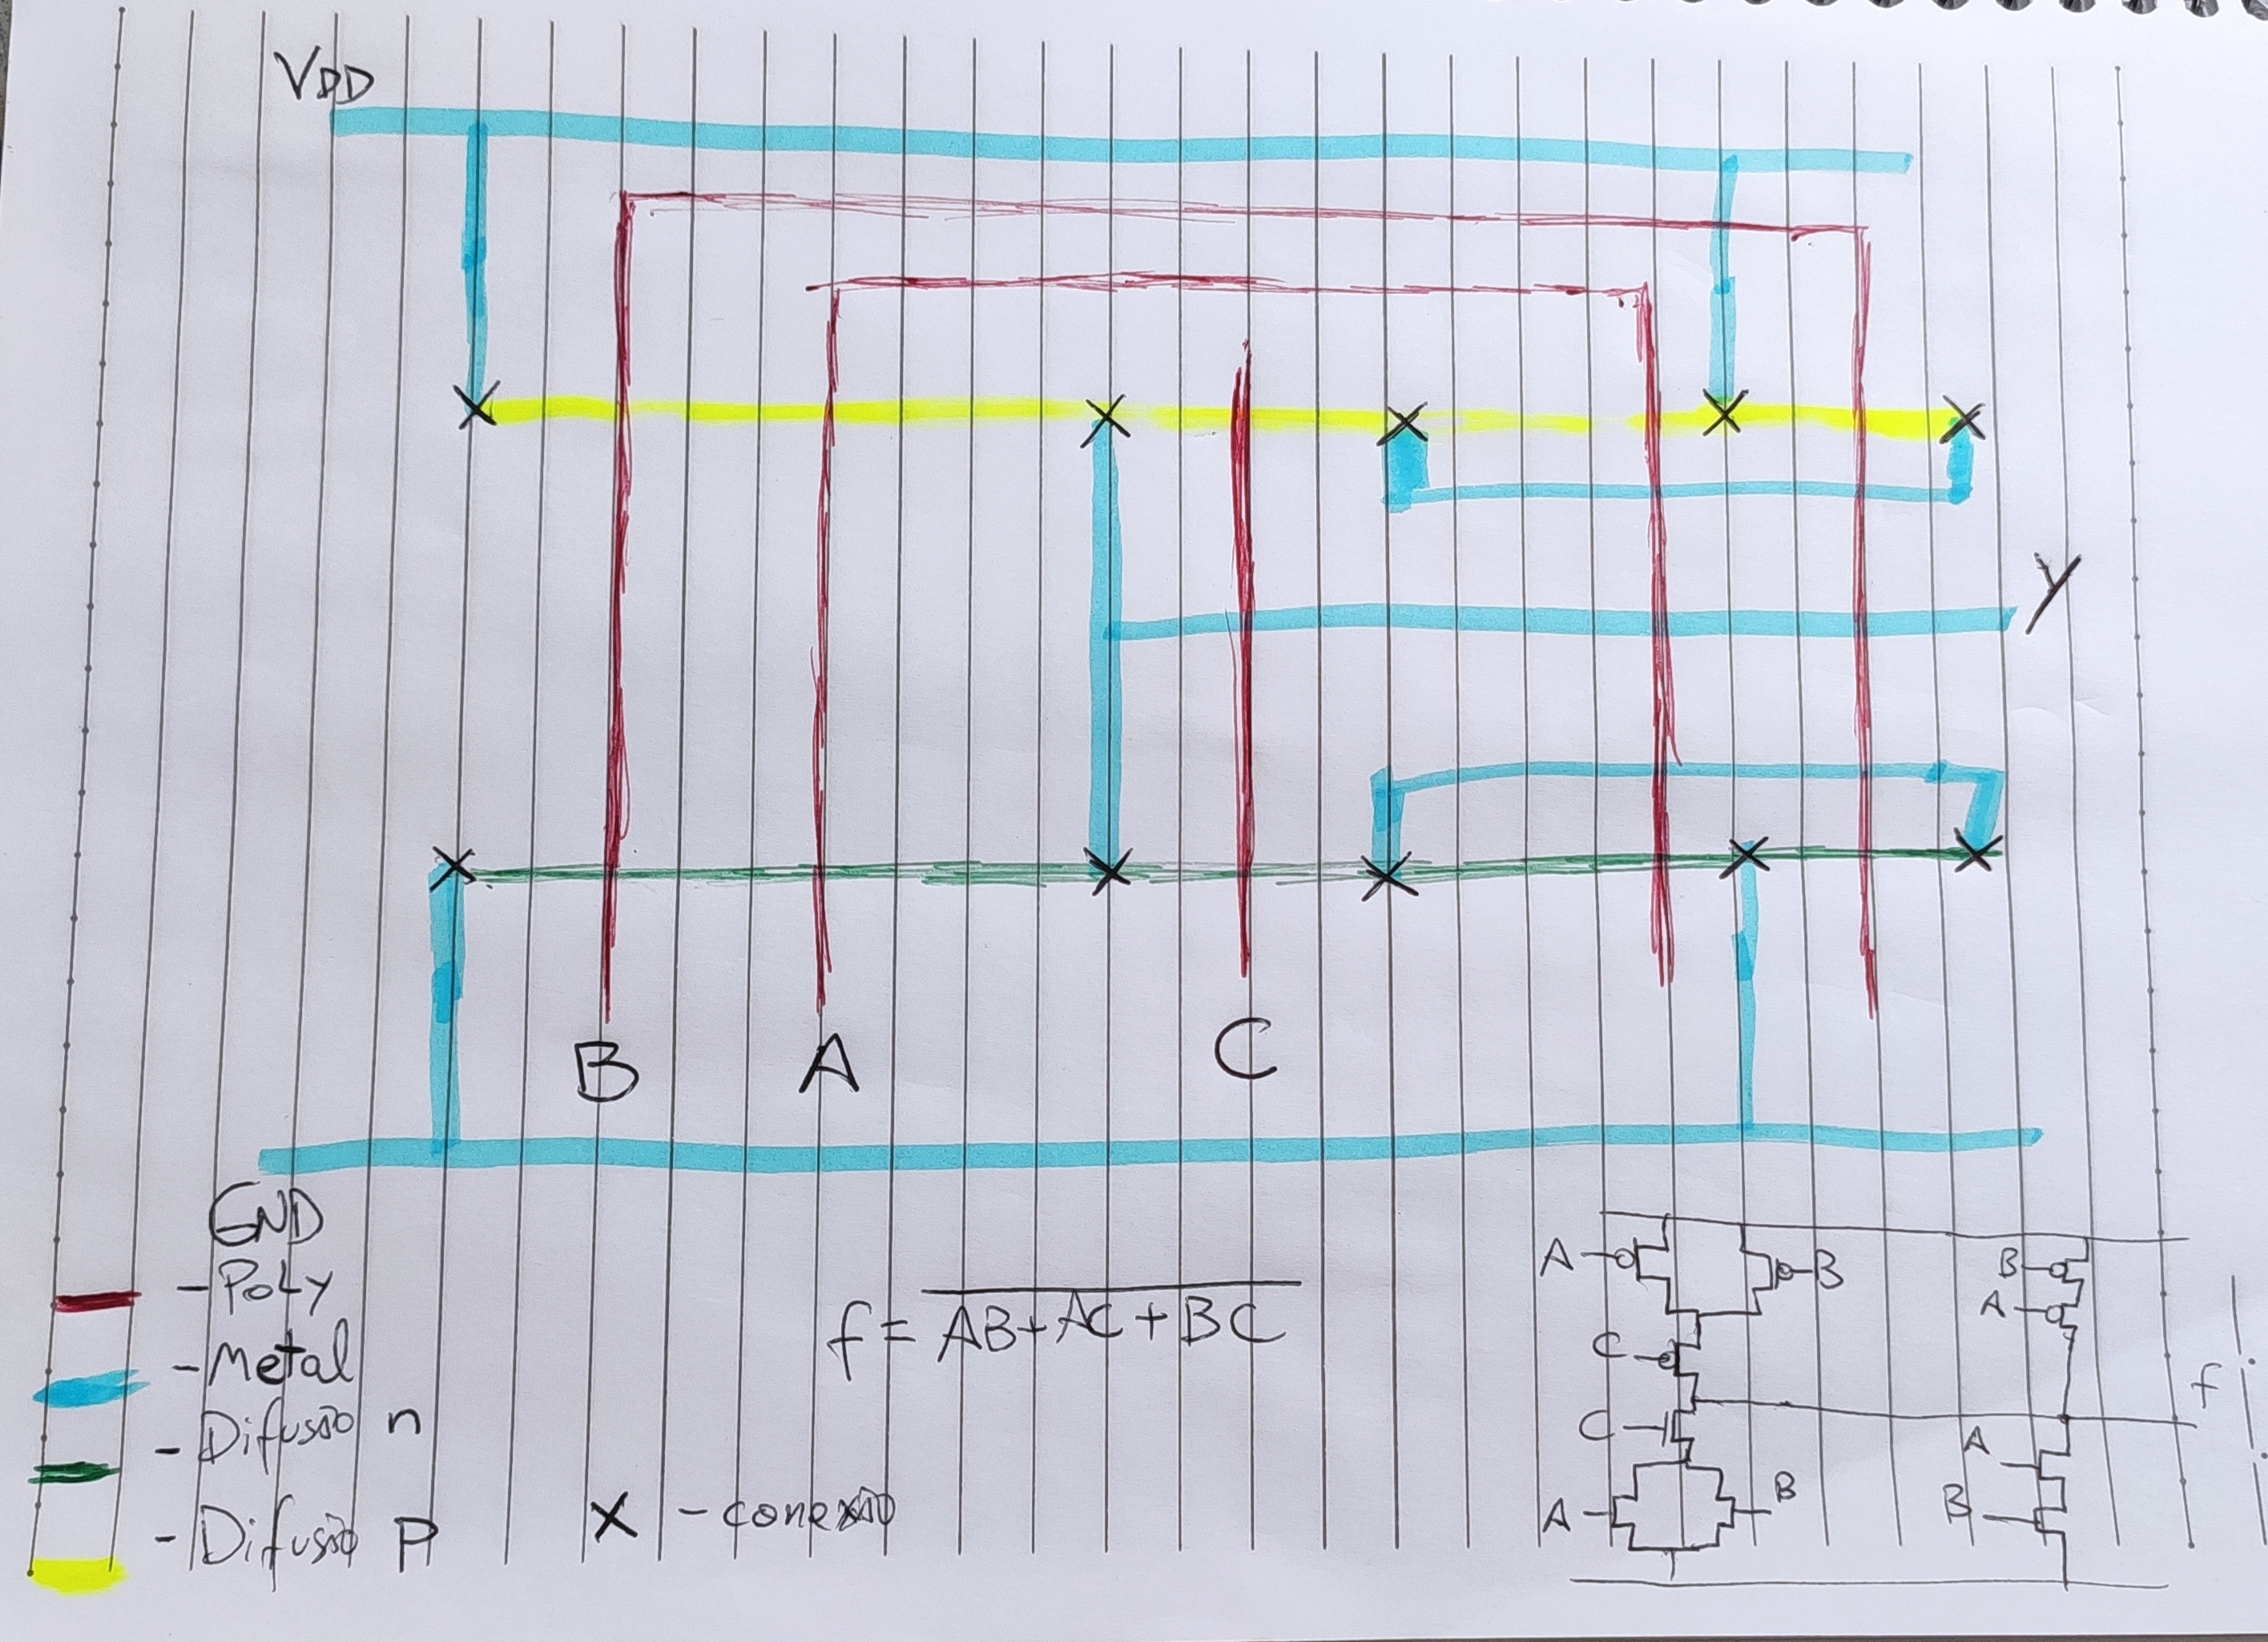 VDD
Y
B A C
GND
- Poly
- Metal
- Difusão n
- Difusão P
X - conexão
f = \overline{AB + AC + BC}
A B
C
C
A B
B
A
f
A
B